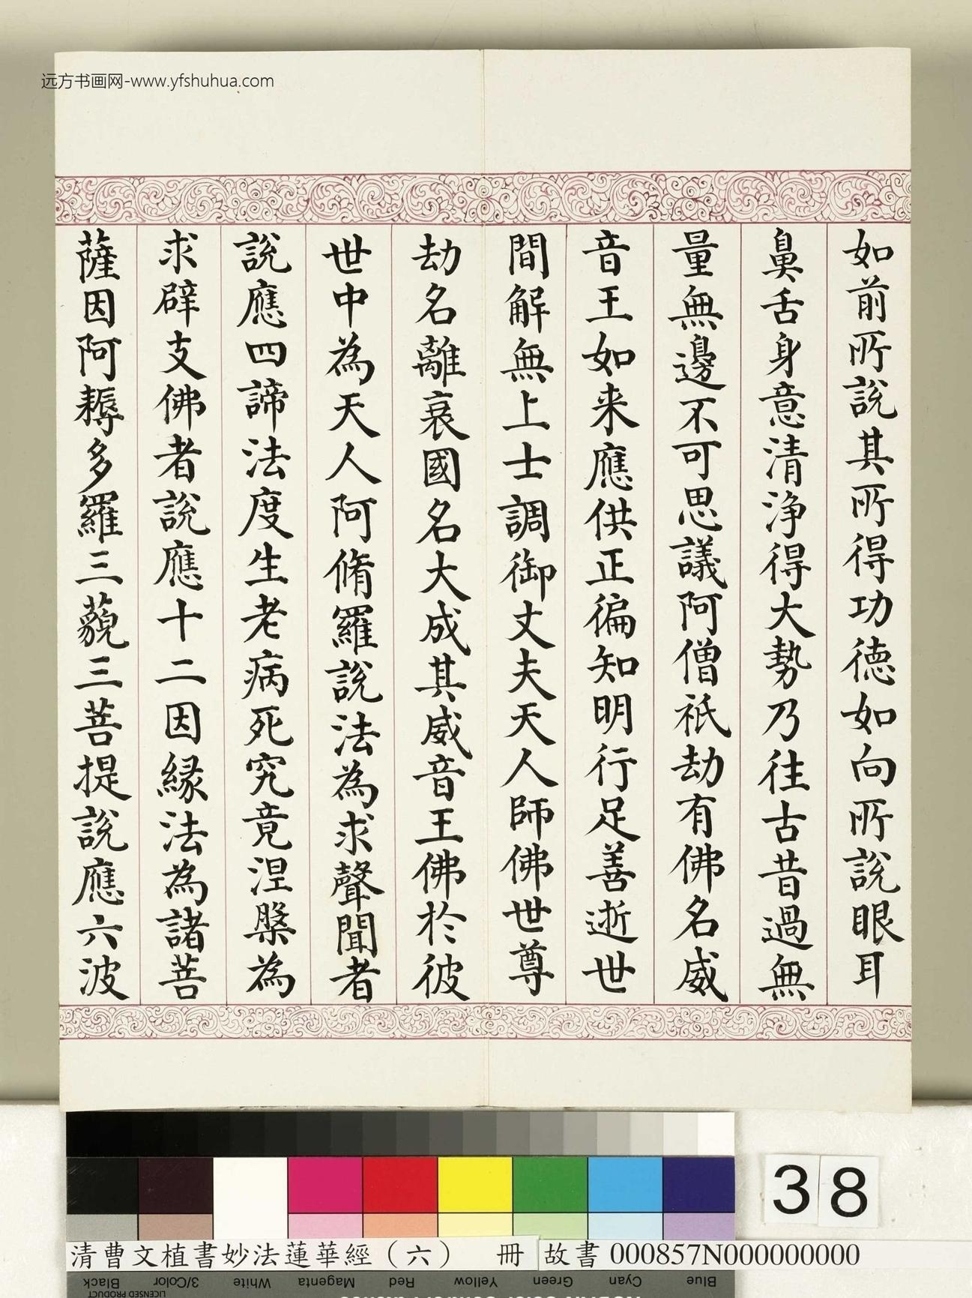 远方书画网-www.yfshuhua.com
如前所說其所得功德如向所說眼耳
鼻舌身意清淨得大勢乃往古昔過無
量無邊不可思議阿僧祇劫有佛名威
音王如来應供正徧知明行足善逝世
間解無上士調御丈夫天人師佛世尊
劫名離衰國名大成其威音王佛於彼
世中為天人阿脩羅說法為求聲聞者
說應四諦法度生老病死究竟涅槃為
求辟支佛者說應十二因緣法為諸菩
薩因阿耨多羅三藐三菩提說應六波
38
清曹文植書妙法蓮華經（六） 冊 故書000857N000000000
Black 3/Color White Magenta Red Yellow Green Cyan Blue
LICENSED PRODUCT